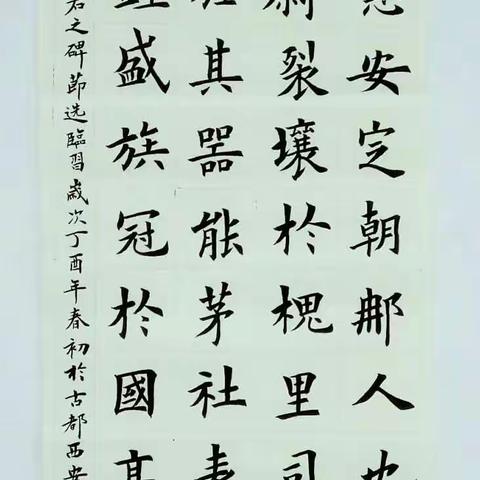 安定朝那人也
尉裂壤於槐里司
旌其器能茅社表
盛族冠於國高
君之碑節选臨習歲次丁酉年春初於古都西安